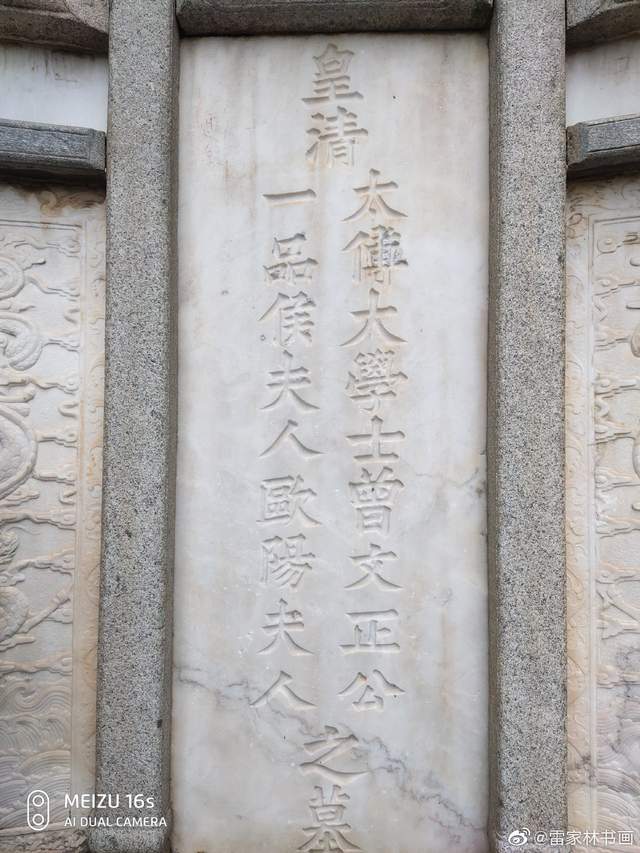 皇清
太傅大學士曾文正公
一品侯夫人歐陽夫人
之墓
MEIZU 16s
AI DUAL CAMERA
@雷家林书画